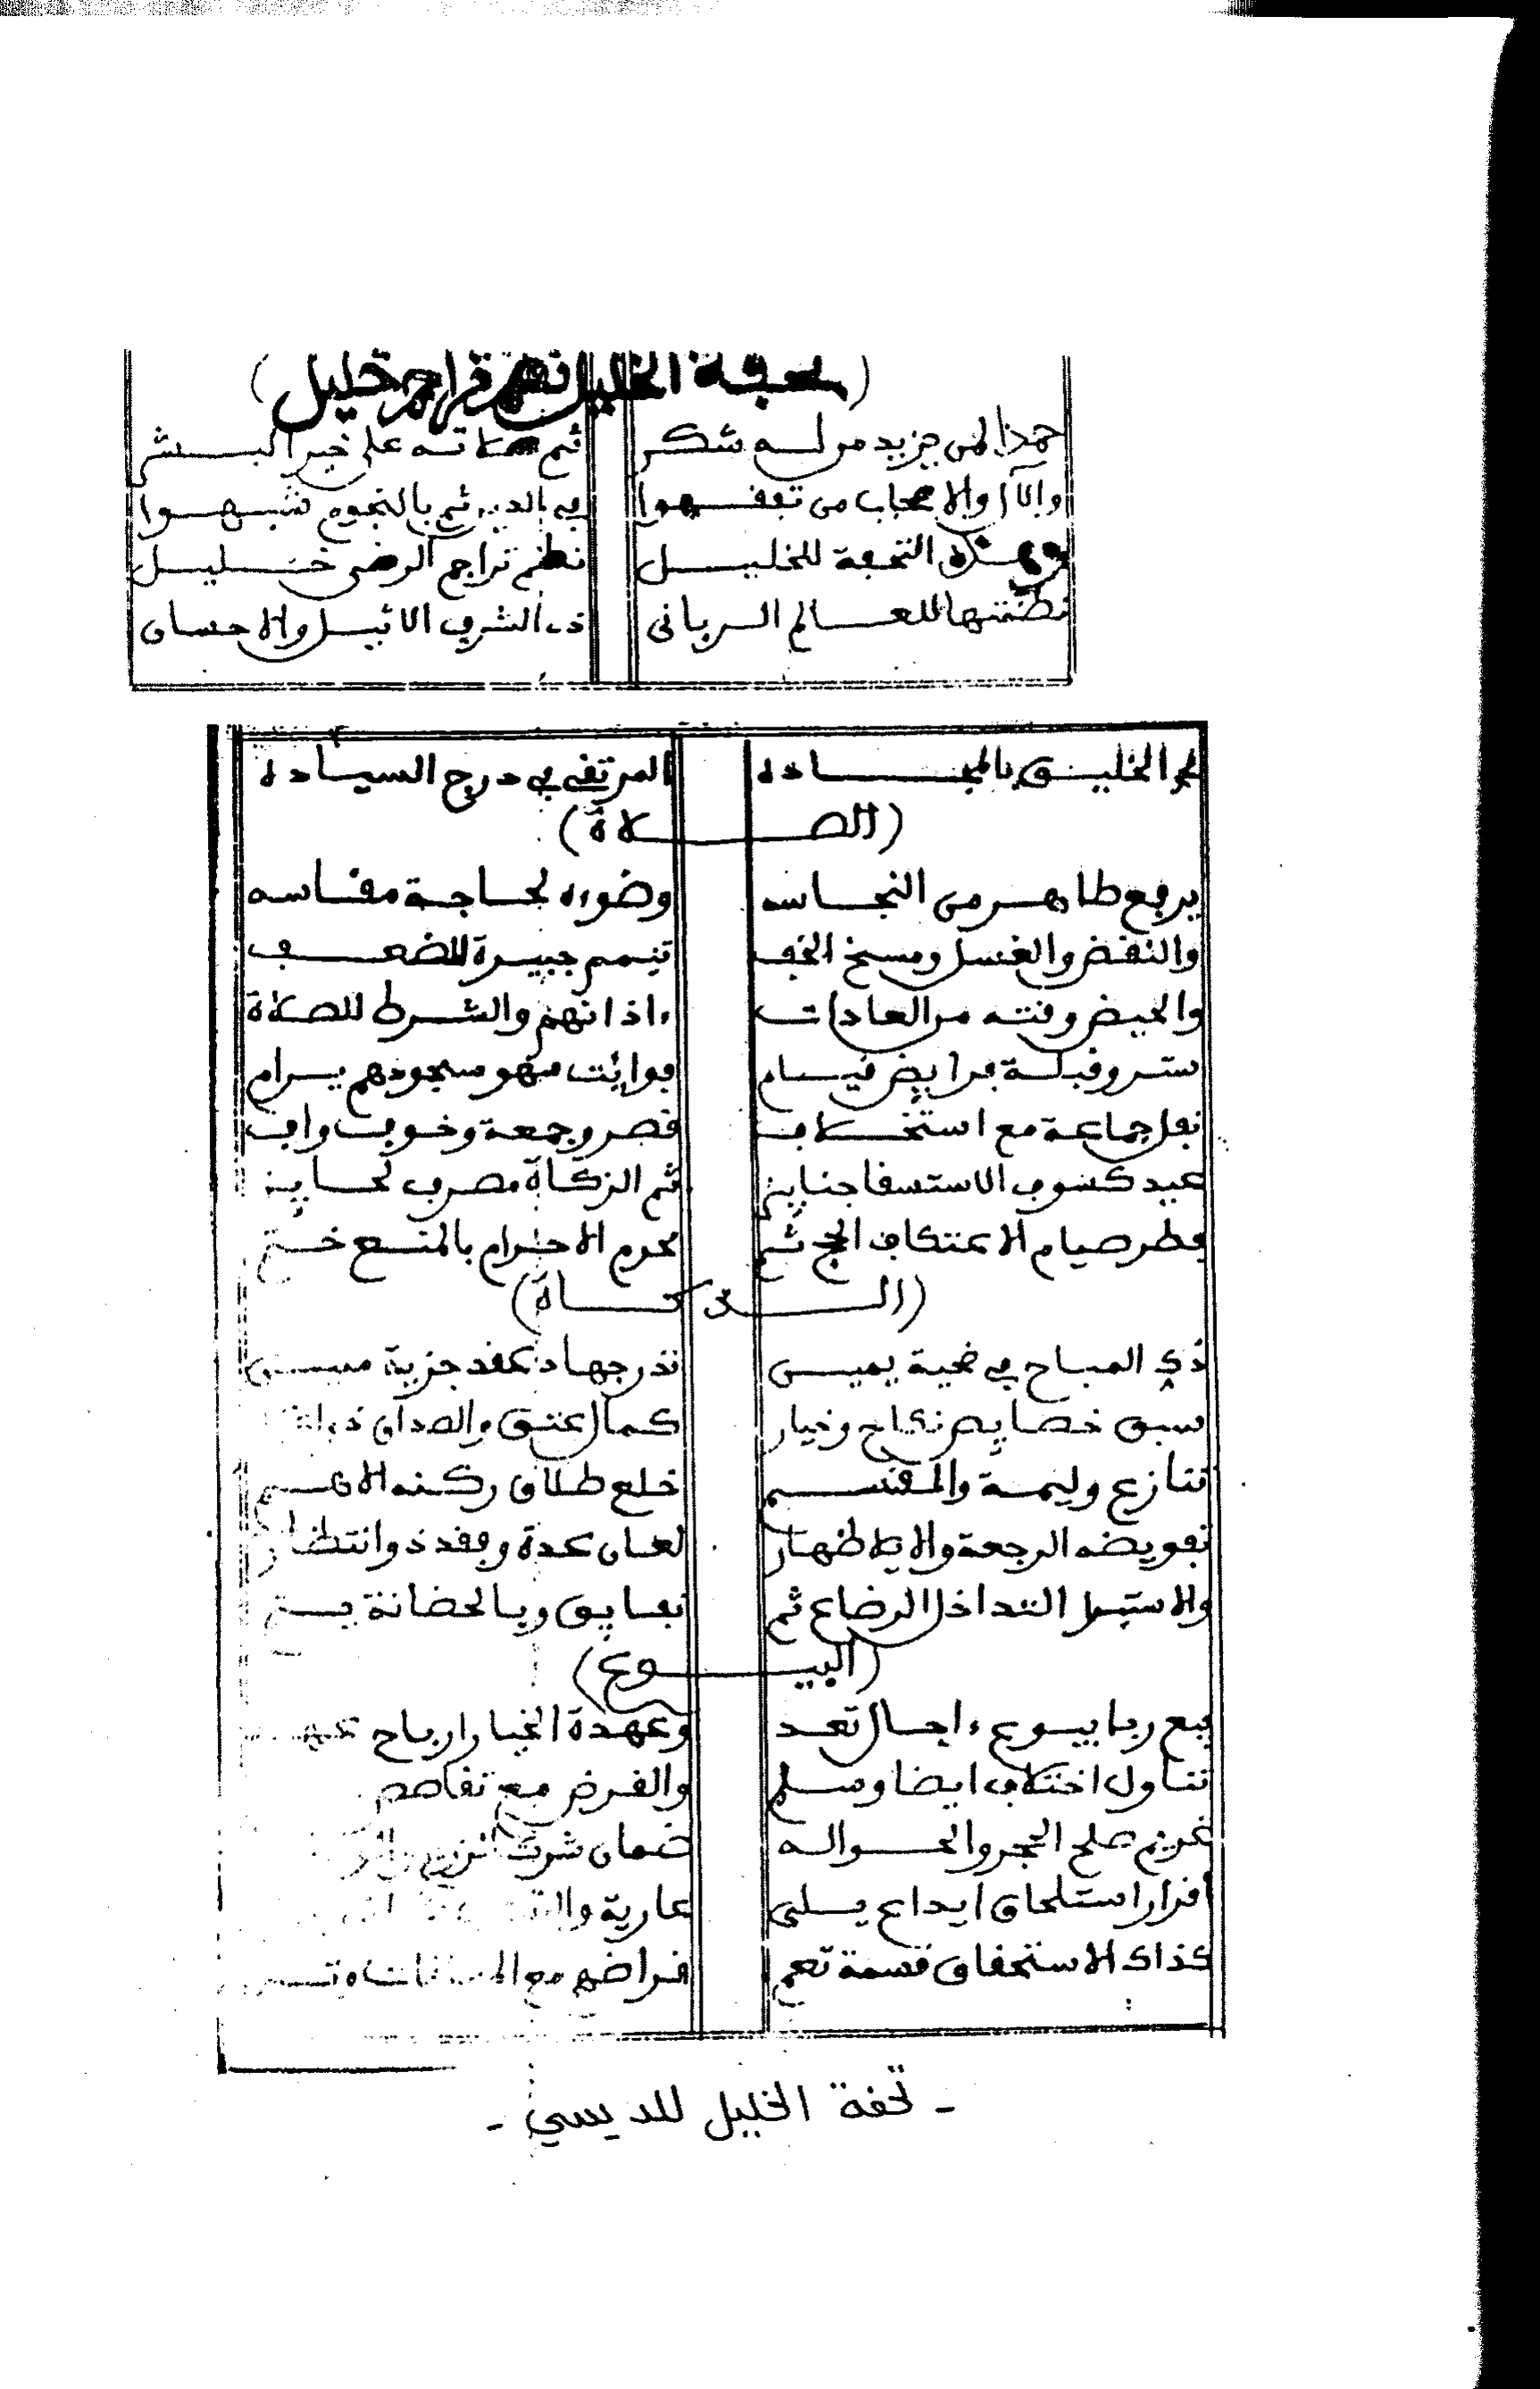 (تحفة الخليل نظم تراجم خليل)
حمدا لمن يزيد من له شكر ثم صلاته على خير البشر
والآل والاصحاب من تفقهوا في الدين ثم بالنجوم شبهوا
وهذه التحفة للخليل نظم تراجم الرضى خليل
نظمتها للعالم الرباني ذي الشرف الاثيل والاحسان
الخليق بالمجادة المرتقي في درج السيادة
(الصلاة)
يرفع طاهر من النجاسه وضوءه لحاجة مقاسه
والنقض والغسل ومسح الخف تيمم جبيرة للضعف
والحيض وقته من العادات ءاذانهم والشرط للصلاة
ستر وقبلة فرايض قيام فوايت سهو سجودهم يرام
نفل جماعة مع استخلاف قصر وجمعة وخوف واف
عيد كسوف الاستسقا جنايز ثم الزكاة مصرف لحايز
فطر صيام الاعتكاف الحج ثم محرم الاحرام بالمنع ختم
(الذكاة)
ذكي المباح في ضحية يميـن نذر جهاد عقد جزية
سبق خصايص نكاح وخيار كمال عتق والصداق
تنازع وليمة والمقسم خلع طلاق ركنه الاهم
تفويضه الرجعة والايلا ظهار لعان عدة وفقد ذو انتظار
والاستبرا التداخل الرضاع ثم نفايق وبالحضانة يتم
(البيوع)
بيع ربا بيوع ءاجال تعد وعهدة الخيار ارباح
تناول اختلاف ايضا وسلم والقرض مع تقاصص
غريم صلح الحجر والحواله ضمان شرك
اقرار استلحاق ايداع يلي عارية
كذاك الاستحقاق قسمة تعم قراضهم مع
- تحفة الخليل للديسي -